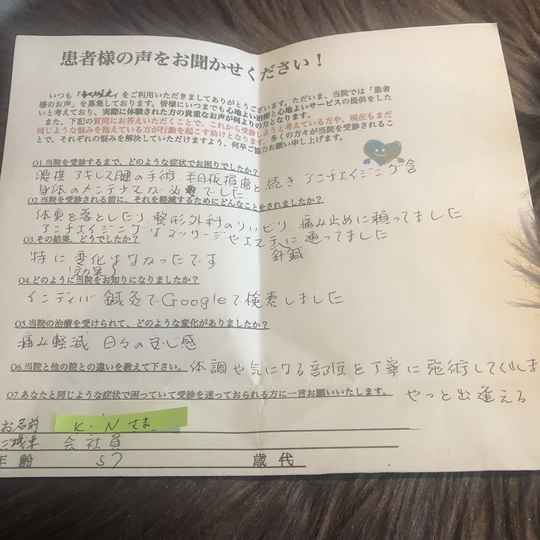 患者様の声をお聞かせください！
いつも をご利用いただきましてありがとうございます。ただいま、当院では「患者
様のお声」を募集しております。皆様にいつまでも心地よい治療と心地よいサービスの提供をした
いと考えており、実際に体験された方の貴重なお声が何よりの力となります。
また、下記の質問にお答えいただくことで、これから受診しようと考えている方や、現在もまだ
同じような悩みを抱えている方が行動を起こす助けとなります。多くの方々が当院を受診されるこ
とで、それぞれの悩みを解決していただけますよう、何卒ご協力お願い申し上げます。
Q1.当院を受診するまで、どのような症状でお困りでしたか？
アキレス腱の手術、半月板損傷と続き アンチエイジング含
身体のメンテナンスが必要でした
Q2.当院を受診される前に、それを軽減するためにどんなことをされましたか？
体重を落としたり、整形外科のリハビリ 痛み止めに頼ってました
アンチエイジングはマッサージやエステに通ってました
針鍼
Q3.その結果、どうでしたか？
特に変化はなかったです
(効果)
Q4.どのように当院をお知りになりましたか？
インディバ 鍼灸でGoogleで検索しました
Q5.当院の治療を受けられて、どのような変化がありましたか？
痛み軽減 日々の 感
Q6.当院と他の院との違いを教えて下さい。 体調や気になる部位を丁寧に施術してくれま
Q7.あなたと同じような症状で困っていて受診を迷っておられる方に一言お願いいたします。 やっと出逢える
お名前 K・Nさま
ご職業 会社員
年 齢 57 歳 代